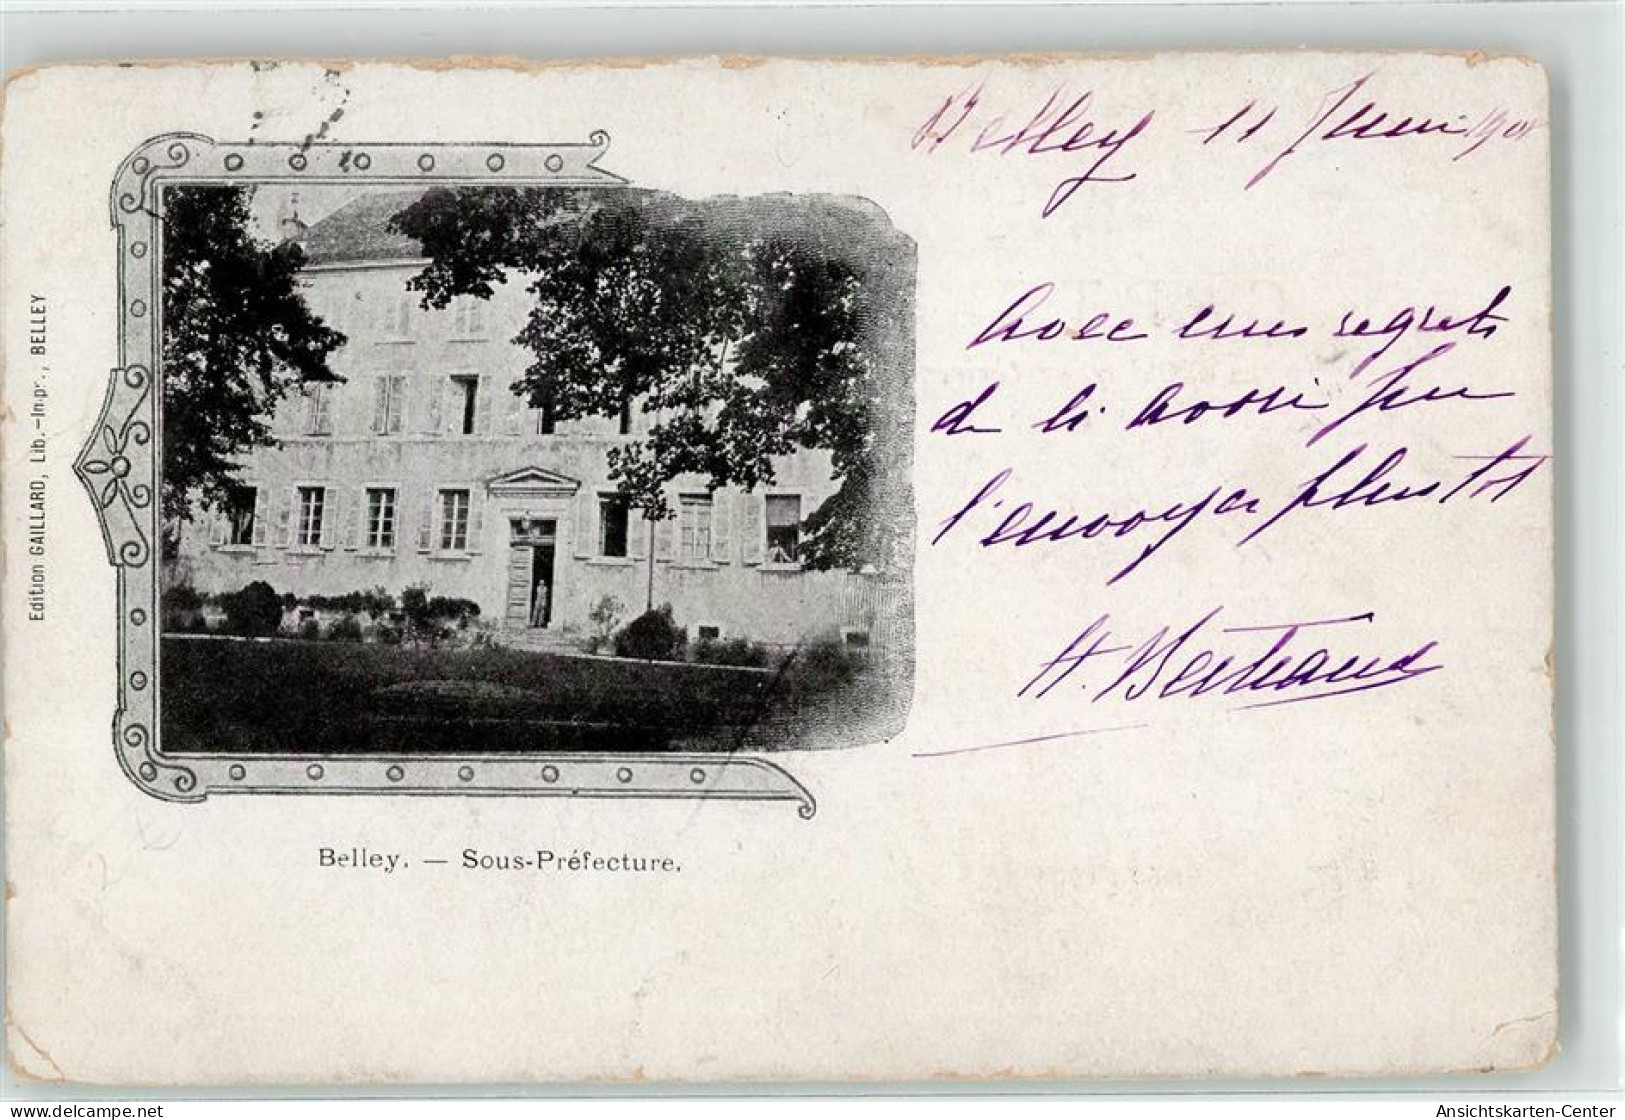 Belley 11 Juin 1901
Avec mes regrets
de n'avoir pu
l'envoyer plus tôt
H. Bertrand
Edition GAILLARD, Lib.-Impr., BELLEY
Belley. — Sous-Préfecture.
www.delcampe.net
Ansichtskarten-Center